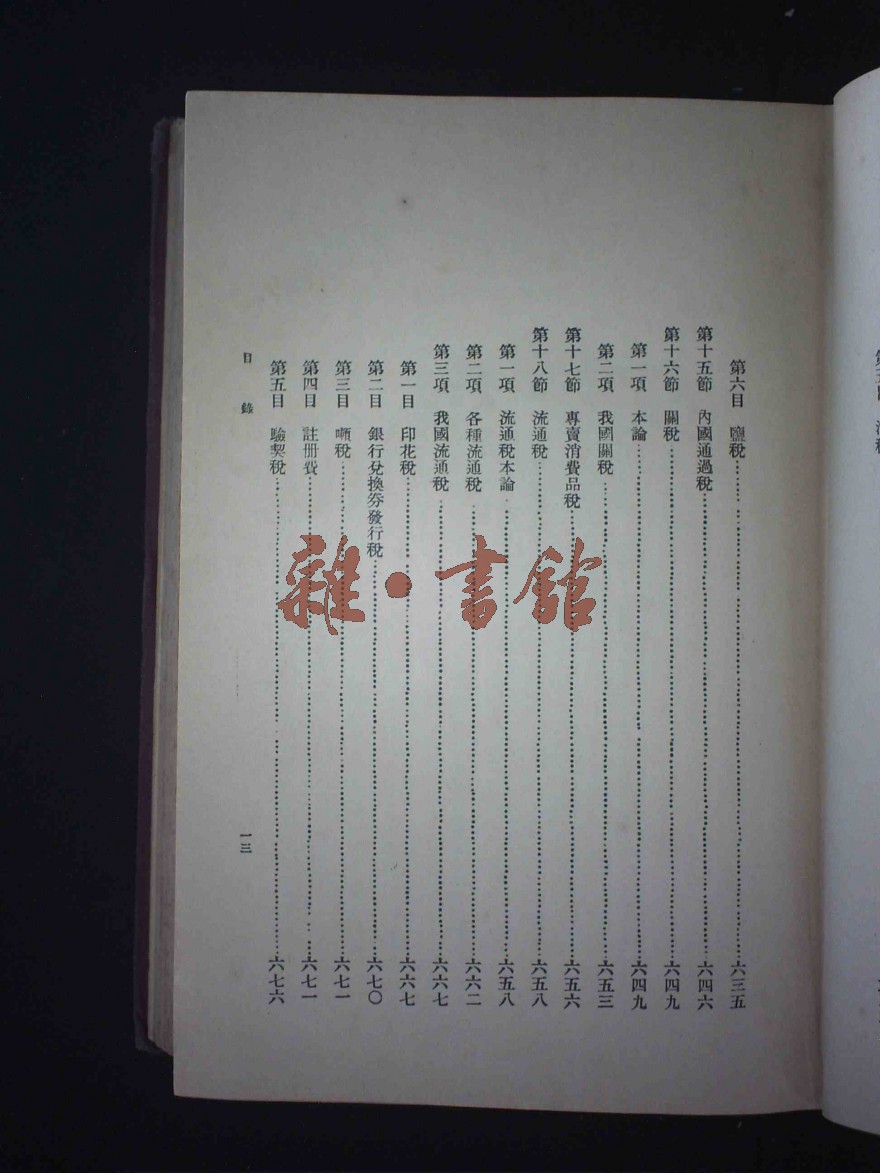 第六目 鹽稅……六三五
第十五節 內國通過稅……六四六
第十六節 關稅……六四九
第一項 本論……六四九
第二項 我國關稅……六五三
第十七節 專賣消費品稅……六五六
第十八節 流通稅……六五八
第一項 流通稅本論……六五八
第二項 各種流通稅……六六二
第三項 我國流通稅……六六七
第一目 印花稅……六六七
第二目 銀行兌換劵發行稅……六七〇
第三目 噸稅……六七一
第四目 註册費……六七一
第五目 驗契稅……六七六
目錄 一三
雜·書館